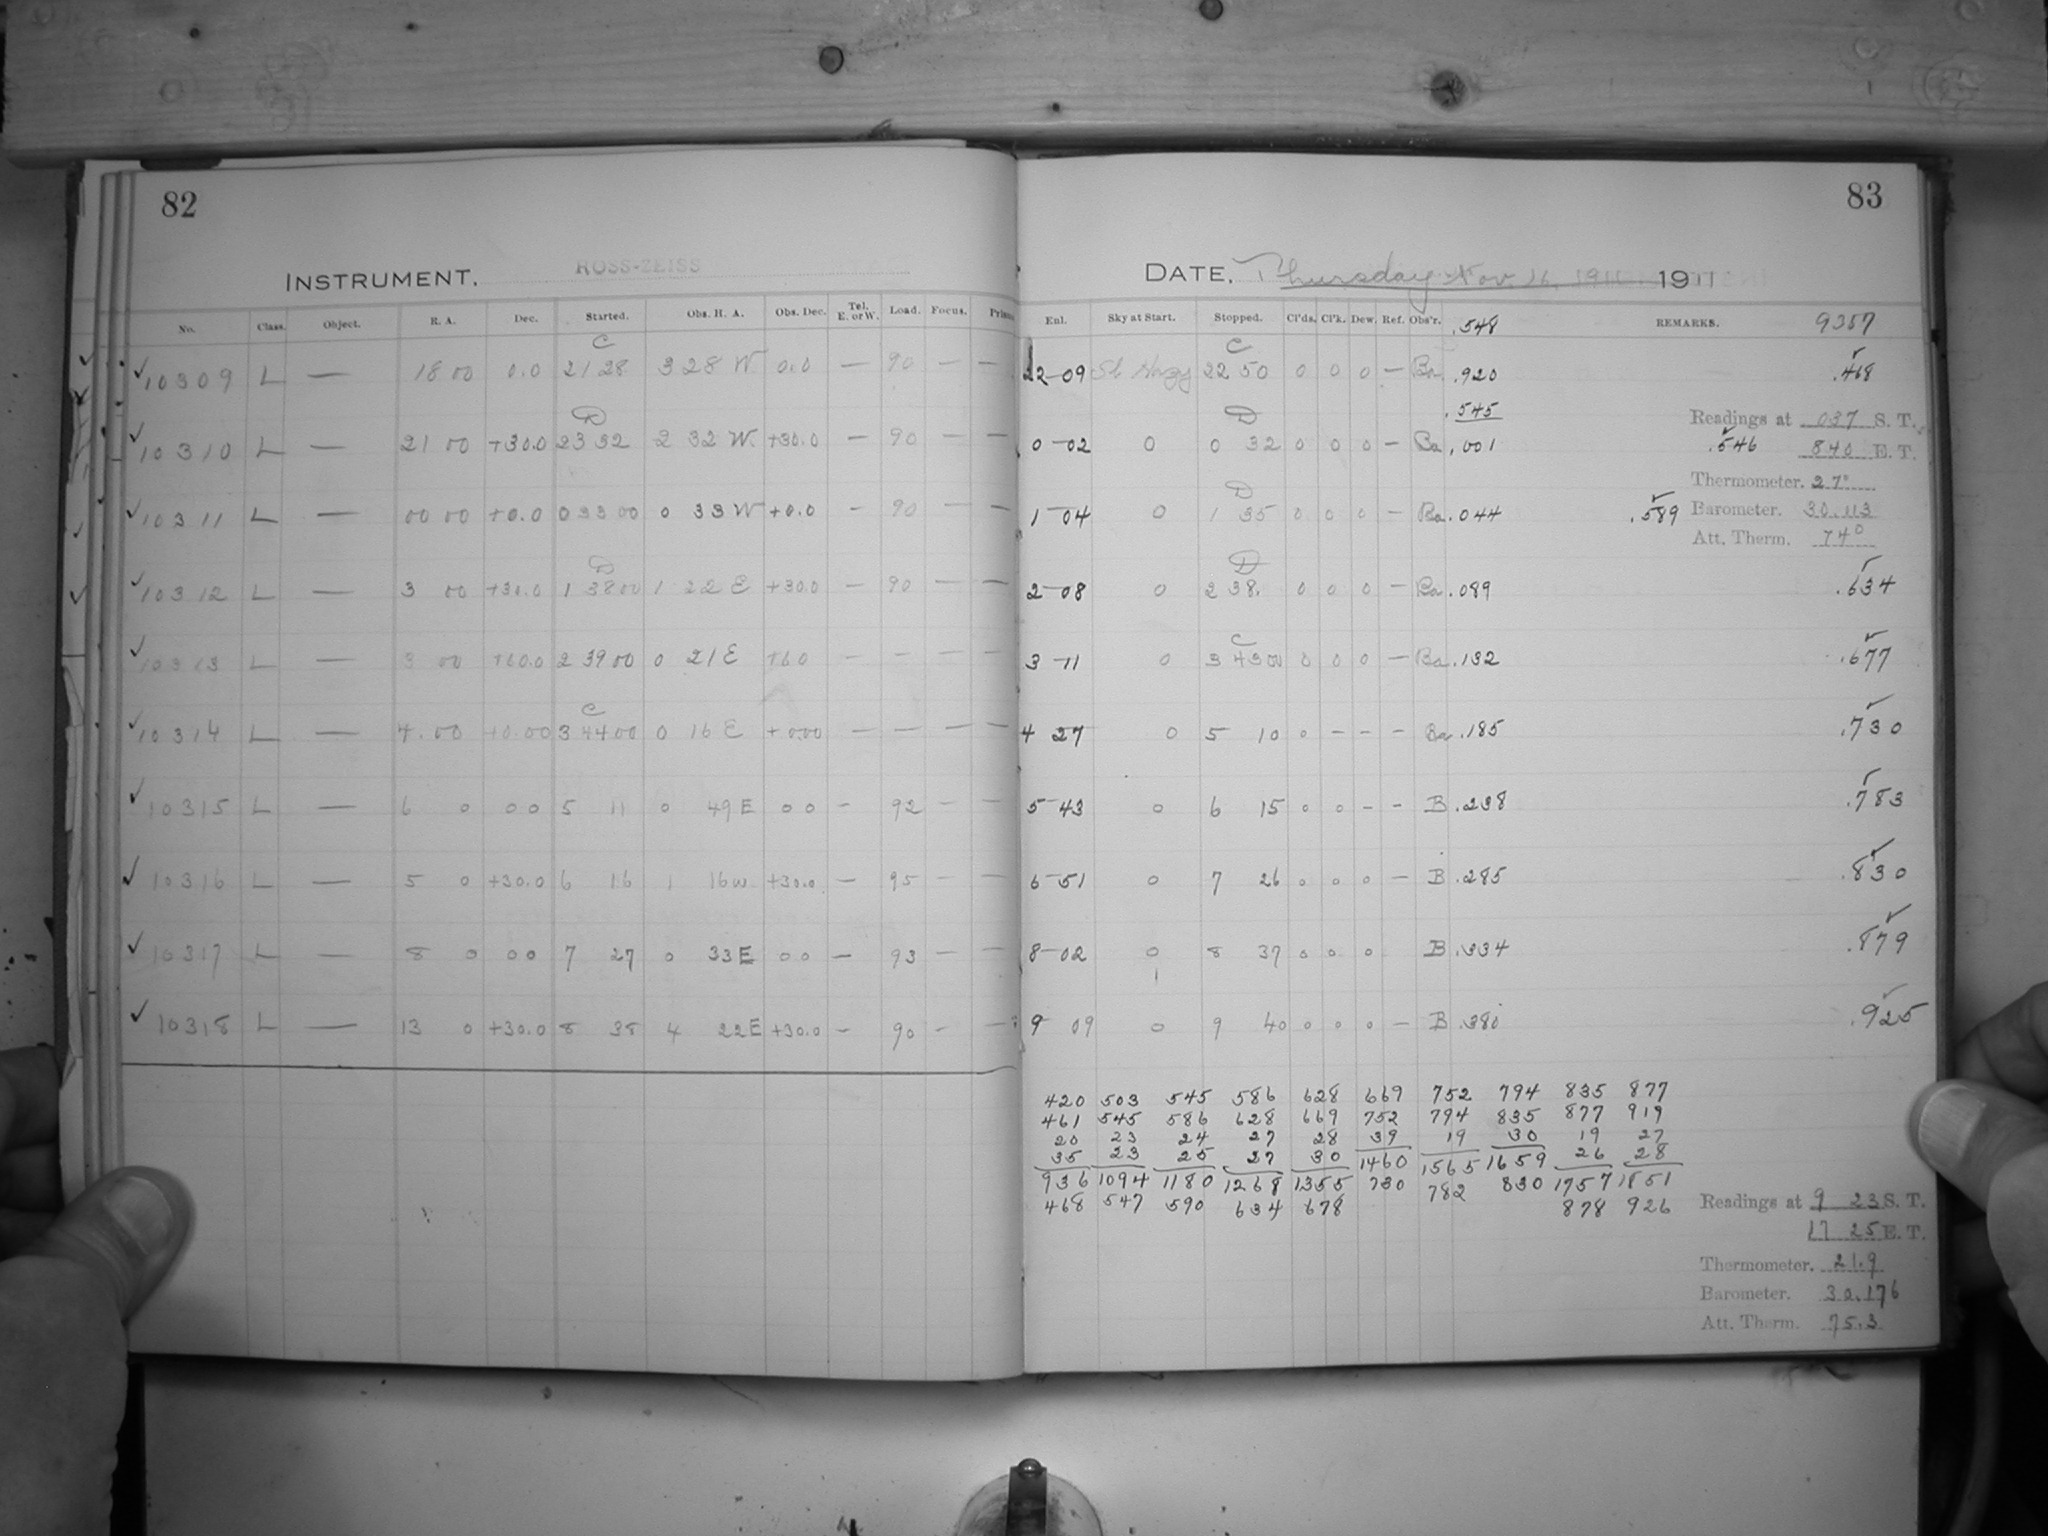 82
INSTRUMENT. ROSS-ZEISS
No. Class. Object. R. A. Dec. Started. Obs. H. A. Obs. Dec. Tel. E. or W. Load. Focus.
C
10309 L — 18 00 0.0 21 28 3 28 W. 0.0 — 90 — —
D
10310 L — 21 00 +30.0 23 32 2 32 W. +30.0 — 90 — —
10311 L — 00 00 +0.0 0 33 00 0 33 W +0.0 — 90 — —
D
10312 L — 3 00 +30.0 1 38 00 1 22 E +30.0 — 90 — —
10313 L — 3 00 +60.0 2 39 00 0 21 E +60 — — — —
C
10314 L — 4.00 +0.00 3 44 00 0 16 E +0.00 — — — —
10315 L — 6 0 0 0 5 11 0 49 E 0 0 — 92 — —
10316 L — 5 0 +30.0 6 16 1 16 W +30.0 — 95 — —
10317 L — 8 0 0 0 7 27 0 33 E 0 0 — 93 — —
10318 L — 13 0 +30.0 8 38 4 22 E +30.0 — 90 — —
83
DATE, Thursday Nov. 16, 1911 1911
Enl. Sky at Start. Stopped. Cl'ds. Cl'k. Dew. Ref. Obs'r. .548 REMARKS. 9357
C
22-09 Sl Hazy 22 50 0 0 0 — Ba. .920 .468
.545
Readings at 037 S. T.
D
0-02 0 0 32 0 0 0 — Ba .001 .546 840 E. T.
Thermometer. 27°
D
1-04 0 1 35 0 0 0 — Ba .044 .589 Barometer. 30.113
Att. Therm. 74°
D
2-08 0 2 38. 0 0 0 — Ba .089 .634
C
3-11 0 3 43 00 0 0 0 — Ba .132 .677
4 27 0 5 10 0 — — — Ba .185 .730
5-43 0 6 15 0 0 — — B .238 .783
6-51 0 7 26 0 0 0 — B .285 .830
8-02 0 8 37 0 0 0 B .334 .879
1
9 09 0 9 40 0 0 0 — B .380 .925
420 503 545 586 628 669 752 794 835 877
461 545 586 628 669 752 794 835 877 919
20 23 24 27 28 39 19 30 19 27
35 23 25 27 30 1460 1565 1659 26 28
936 1094 1180 1268 1355 730 782 830 1757 1851
468 547 590 634 678 878 926
Readings at 9 23 S. T.
17 25 E. T.
Thermometer. 21.9
Barometer. 30.176
Att. Therm. 75.3